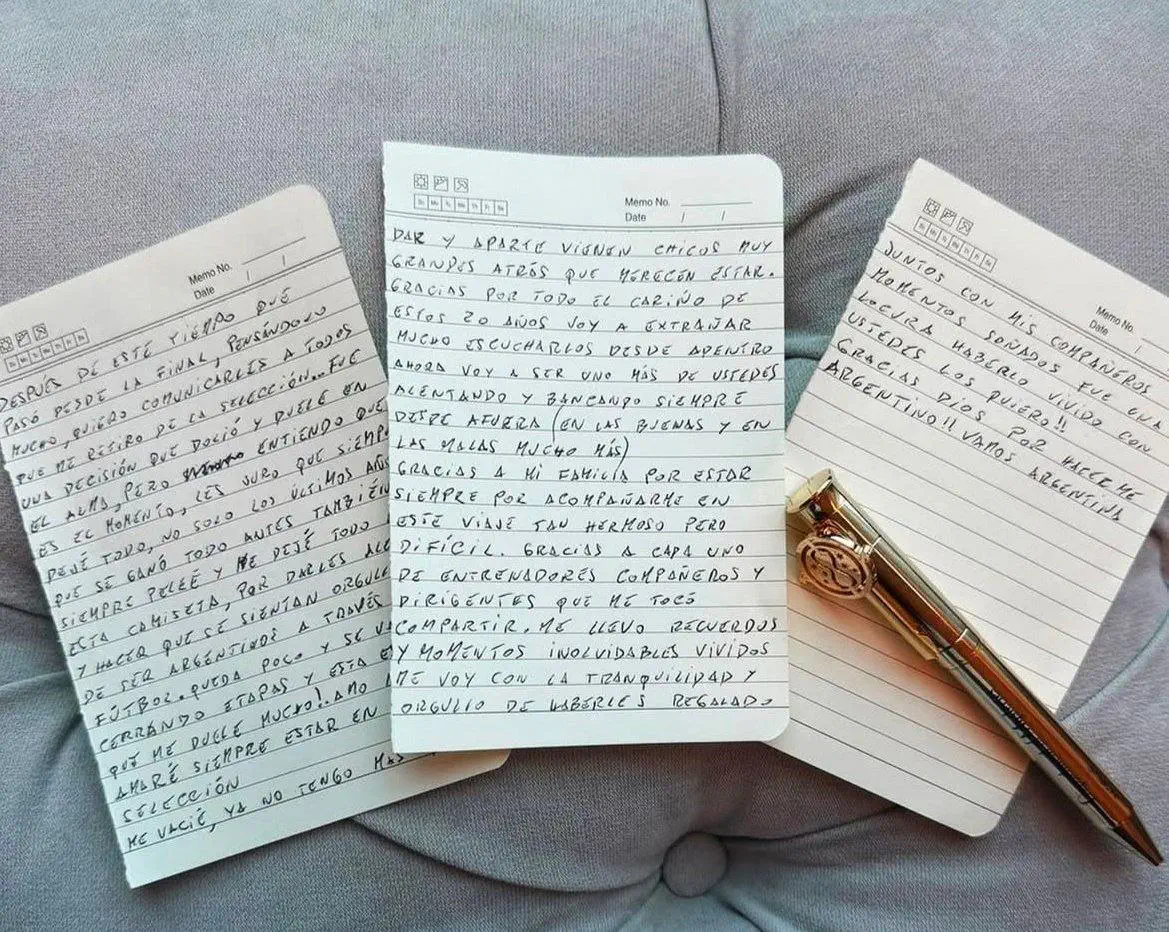 Memo No.
Date / /
DESPUÉS DE ESTE TIEMPO QUE
PASÓ DESDE LA FINAL, PENSÁNDOLO
MUCHO, QUIERO COMUNICARLES A TODOS
QUE ME RETIRO DE LA SELECCIÓN... FUE
UNA DECISIÓN QUE DOLIÓ Y DUELE EN
EL ALMA, PERO ENTIENDO QUE
ES EL MOMENTO, LES JURO QUE SIEMP
DEJÉ TODO, NO SOLO LOS ÚLTIMOS AÑOS
QUE SE GANÓ TODO ANTES TAMBIÉN
SIEMPRE PELEÉ Y ME DEJÉ TODO
ESTA CAMISETA, POR DARLES ALE
Y HACER QUE SE SIENTAN ORGULL
DE SER ARGENTINOS A TRAVÉS
FÚTBOL. QUEDA POCO Y SE VA
CERRANDO ETAPAS Y ESTA E
QUE ME DUELE MUCHO!. AMO
AMARÉ SIEMPRE ESTAR EN
SELECCIÓN
ME VACIÉ, YA NO TENGO MAS
Memo No.
Date / /
DAR Y APARTE VIENEN CHICOS MUY
GRANDES ATRÁS QUE MERECEN ESTAR.
GRACIAS POR TODO EL CARIÑO DE
ESTOS 20 AÑOS VOY A EXTRAÑAR
MUCHO ESCUCHARLOS DESDE ADENTRO
AHORA VOY A SER UNO MÁS DE USTEDES
ALENTANDO Y BANCANDO SIEMPRE
DESDE AFUERA (EN LAS BUENAS Y EN
LAS MALAS MUCHO MÁS)
GRACIAS A MI FAMILIA POR ESTAR
SIEMPRE POR ACOMPAÑARME EN
ESTE VIAJE TAN HERMOSO PERO
DIFÍCIL. GRACIAS A CADA UNO
DE ENTRENADORES COMPAÑEROS Y
DIRIGENTES QUE ME TOCÓ
COMPARTIR. ME LLEVO RECUERDOS
Y MOMENTOS INOLVIDABLES VIVIDOS
ME VOY CON LA TRANQUILIDAD Y
ORGULLO DE HABERLES REGALADO
Memo No.
Date /
JUNTOS CON MIS COMPAÑEROS
MOMENTOS SOÑADOS FUE UNA
LOCURA HABERLO VIVIDO CON
USTEDES LOS QUIERO!!
GRACIAS DIOS POR HACERME
ARGENTINO!! VAMOS ARGENTINA